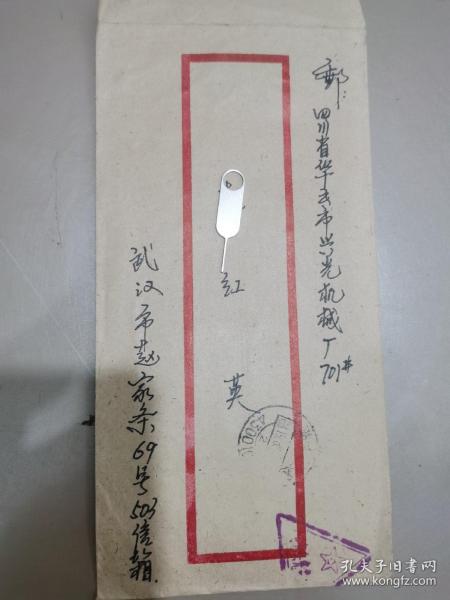 邮:四川省华云市兴光机械厂701#
红
英
武汉市赵家条69号503信箱
43001
孔夫子旧书网
www.kongfz.com